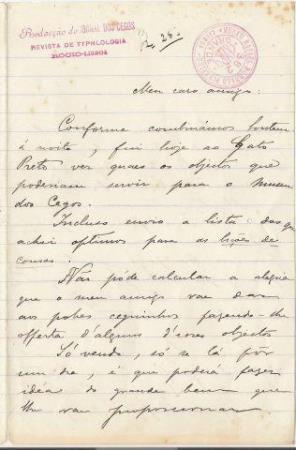 Redacção do Jornal DOS CEGOS
REVISTA DE TYPHLOLOGIA
ROCIO-LISBOA
26.
Meu caro amigo:
Conforme combinámos hontem
á noite, fui hoje ao Gato
Preto ver quaes os objectos que
poderiam servir para o Museu
dos Cegos.
Incluso envio a lista dos que
achei optimos para as lições de
cousas.
Não póde calcular a alegria
que o meu amigo vae dar
aos pobes ceguinhos fazendo-lhe
offerta d'alguns d'esses objectos
Só vendo, só se lá fôr
um dia, é que poderá fazer
idéa do grande bem que
lhe vae proporcionar